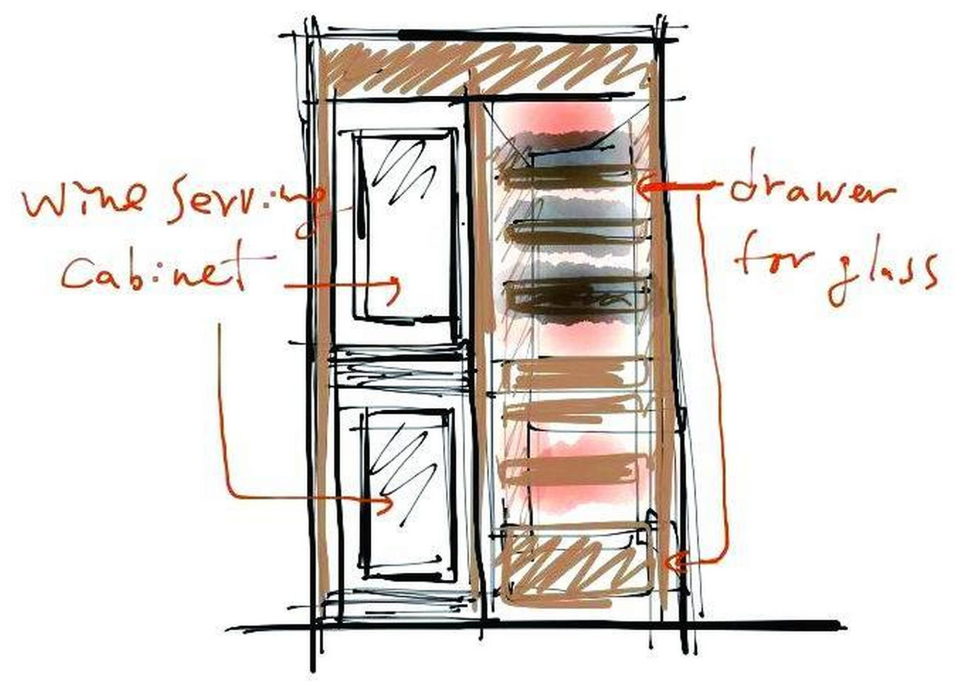 wine serving
cabinet
drawer
for glass